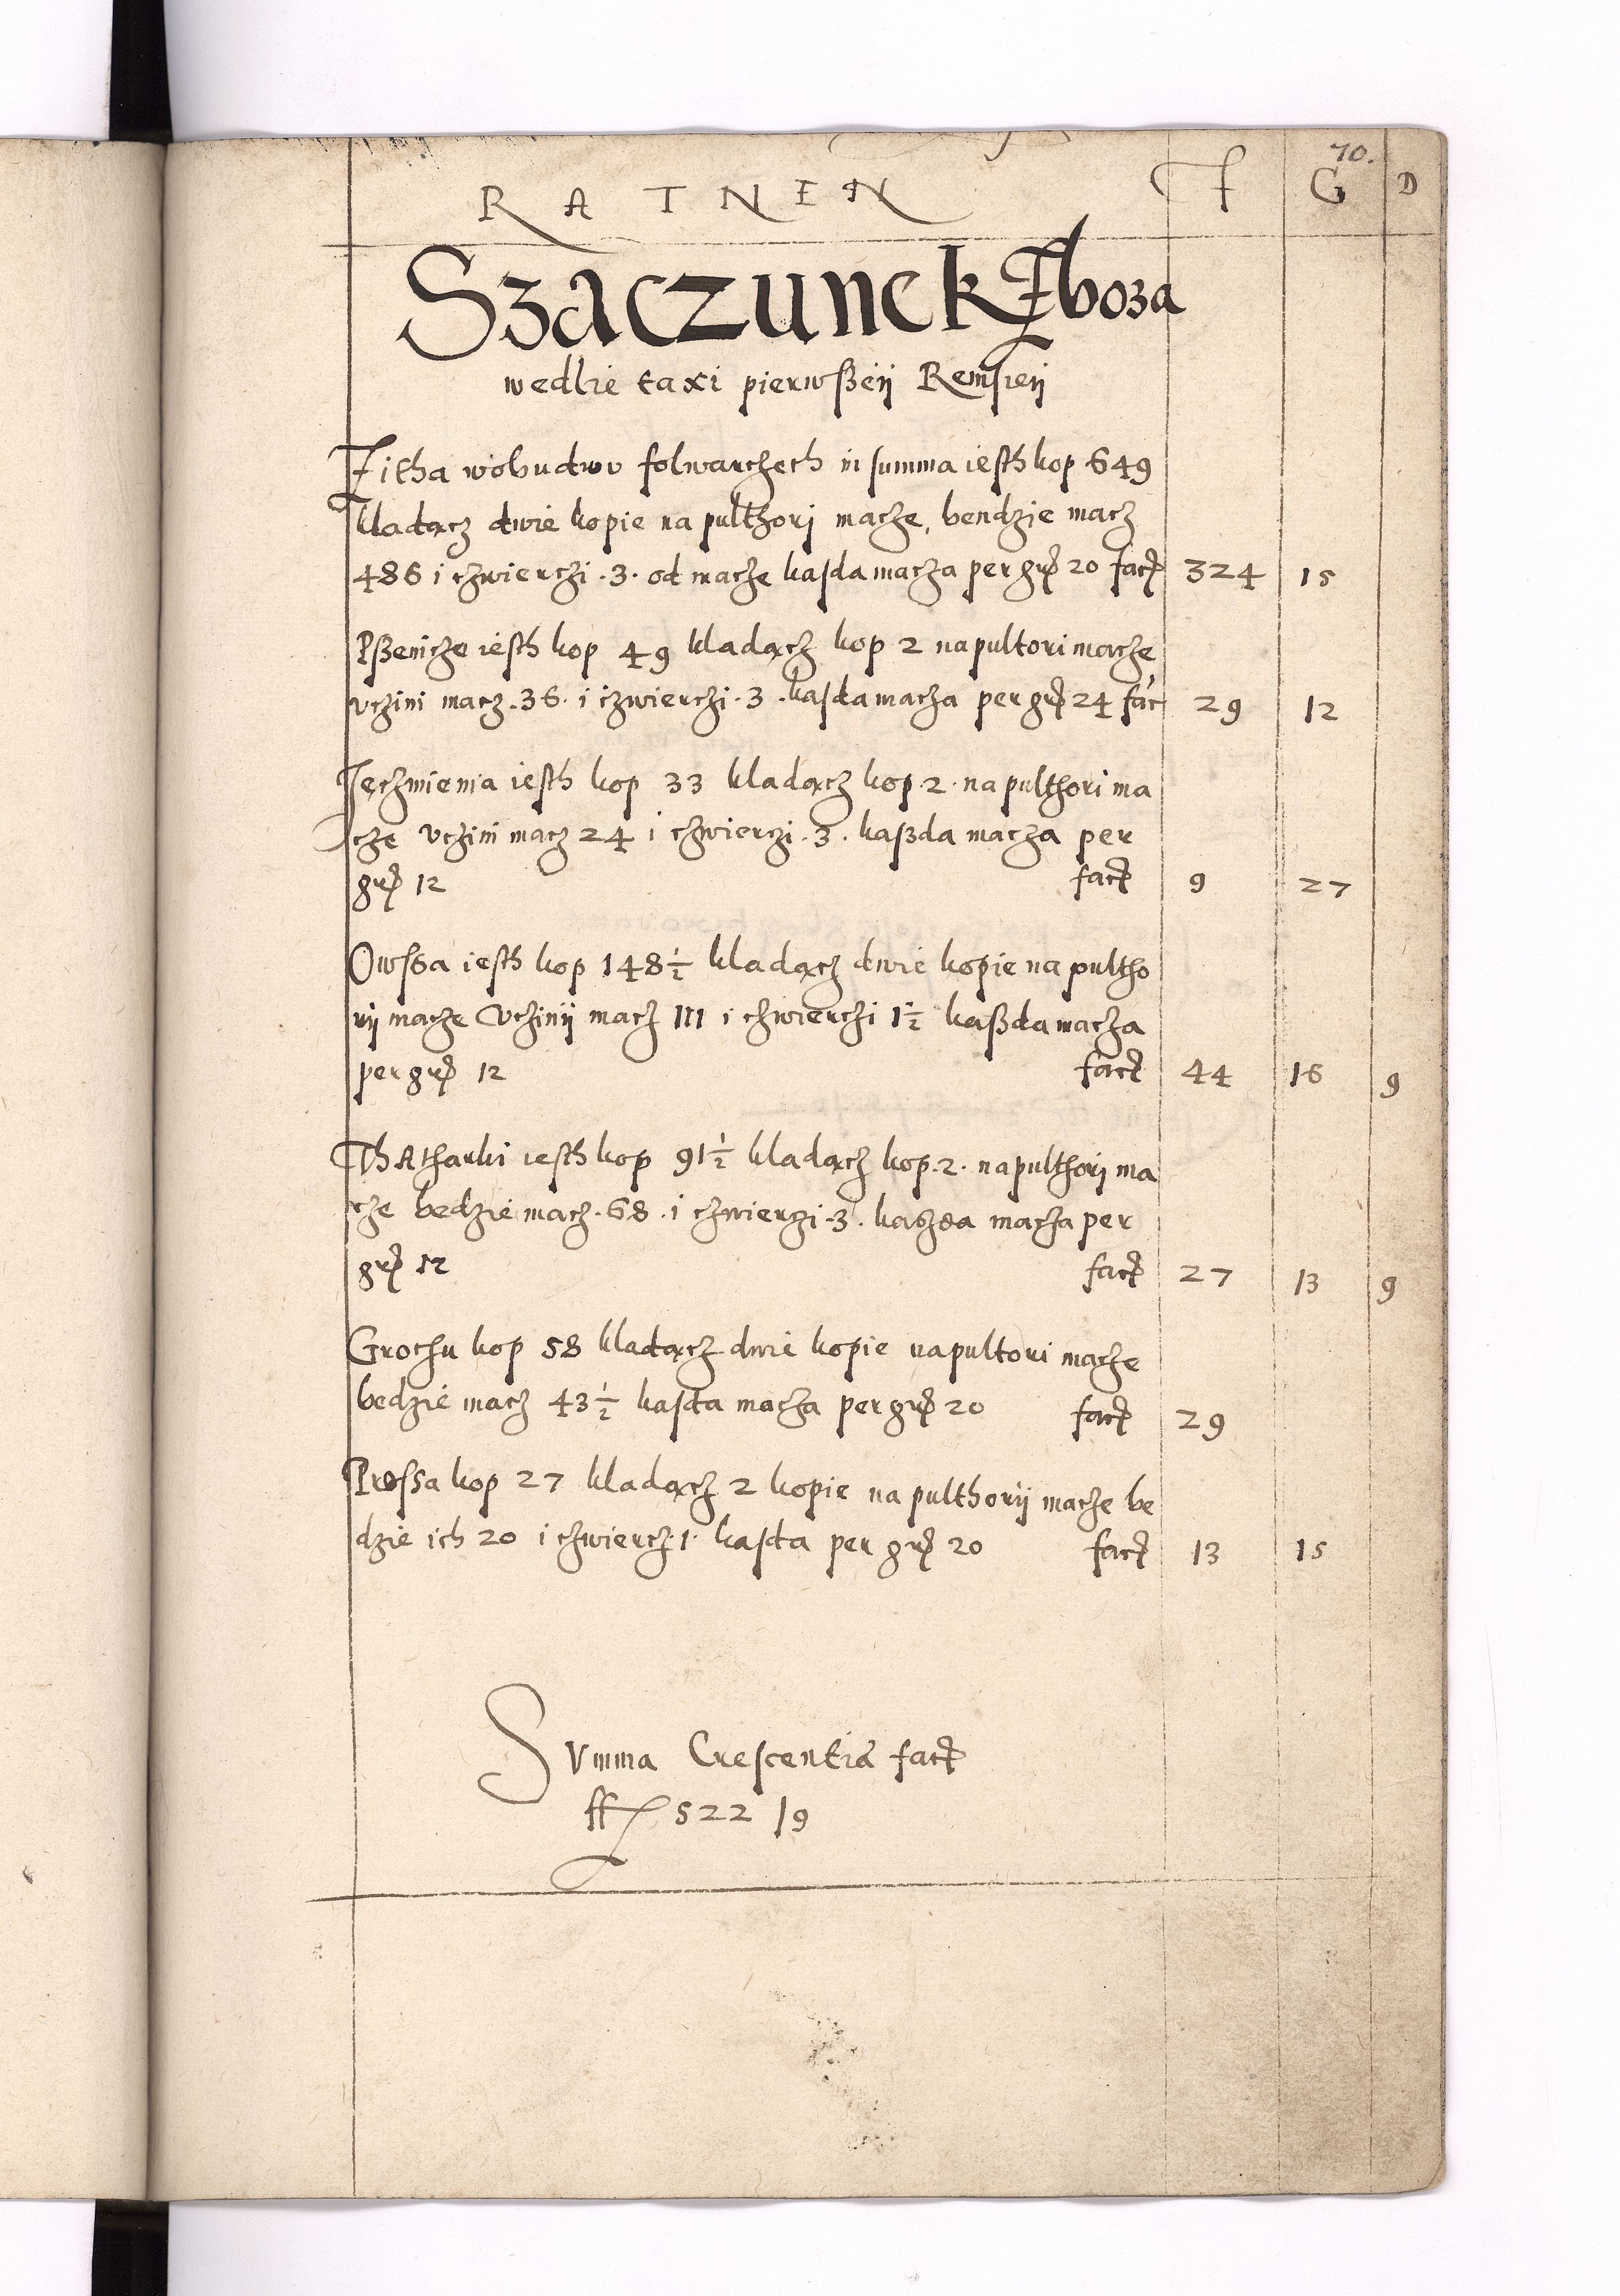 70.
RATNEN F G D
Szaczunek Zboza
wedlie taxi pierwßeÿ Remsieÿ
Zitha wobudwu folwarczech in summa iesth kop 649
kladącz dwie kopie na pulthorj macze, bendzie macz
486 i czwierczi .3. od macze kasda macza per grꝭ 20 fact 324 15
Pßenicze iesth kop 49 kladącz kop 2 na pultori macze
vczini macz .36. i czwierczi .3. kasda macza per grꝭ 24 fac 29 12
Jęczmienia iesth kop 33 kladącz kop .2. na pulthori ma
cze vczini macz 24 i czwierczi .3. kaßda macza per
grꝭ 12 fact 9 27
Owssa iesth kop 148½ kladącz dwie kopie na pultho
rÿ macze Vczinÿ macz 111 i czwierczi 1½ kaßda macza
per grꝭ 12 fact 44 16 9
Thatharki iesth kop 91½ kladącz kop .2. na pulthorj ma
cze bedzie macz .68. i czwierczi .3. kazda macza per
grꝭ 12 fact 27 13 9
Grochu kop 58 kladącz dwie kopie na pultori macze
bedzie macz 43½ kasda macza per grꝭ 20 fact 29
Prossa kop 27 kladącz 2 kopie na pulthorÿ macze be
dzie ich 20 i czwiercz .1. kasda per grꝭ 20 fact 13 15
Summa Crescentia fact
ff 522 19